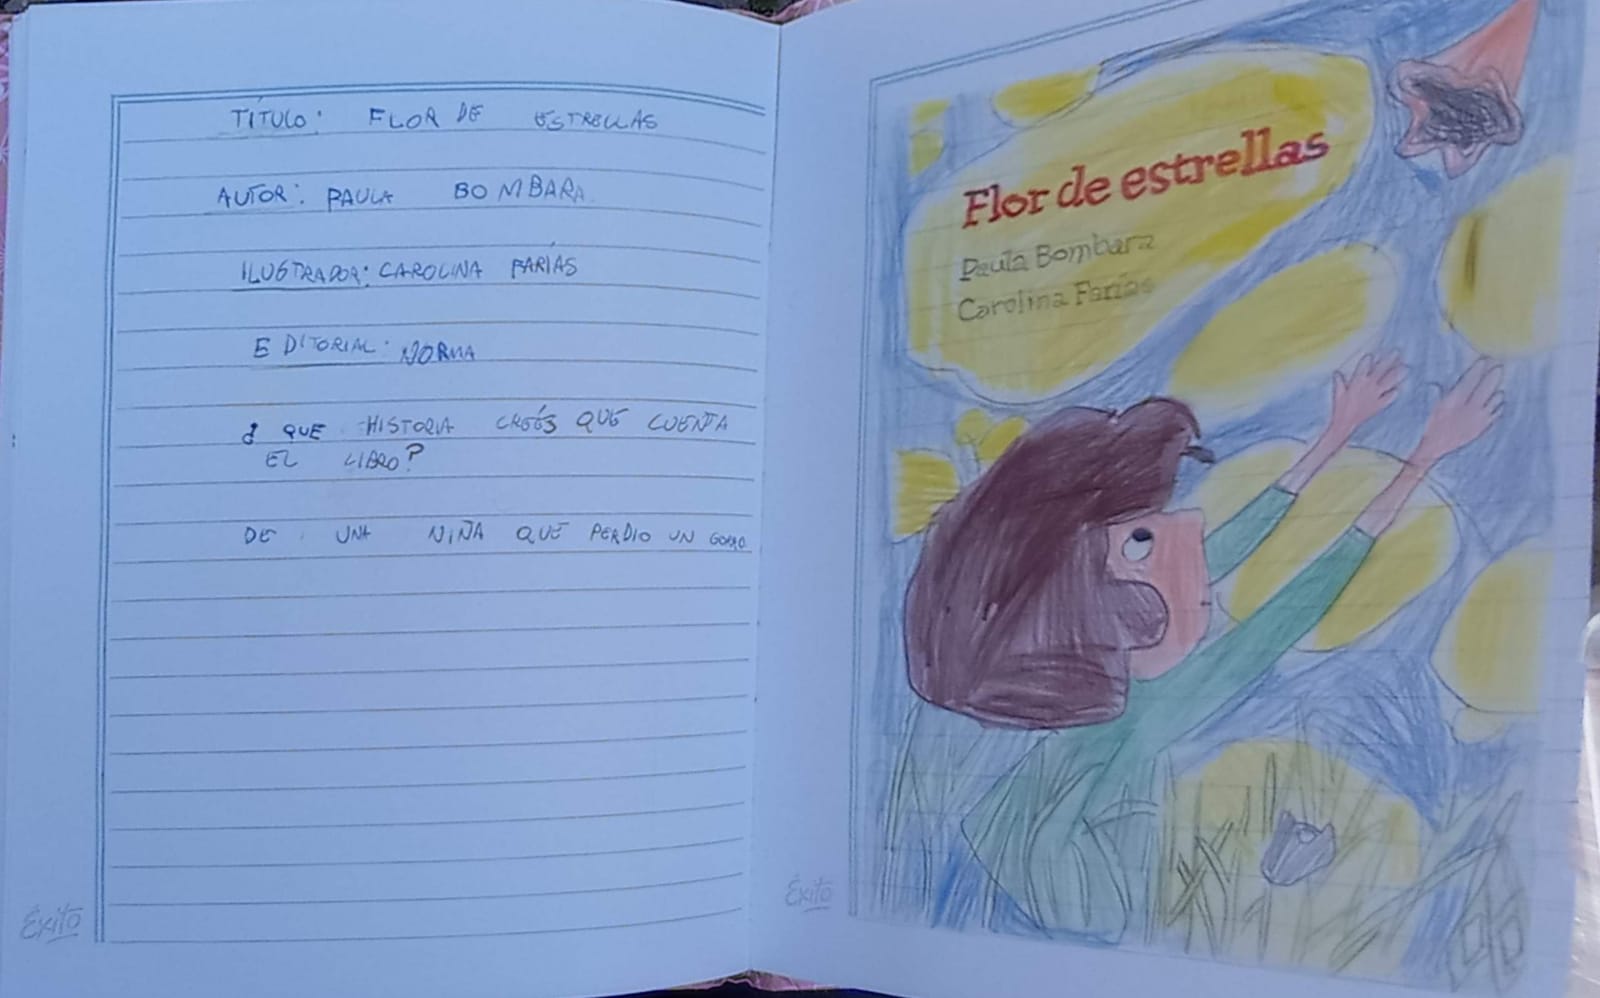 TÍTULO: FLOR DE ESTRELLAS
AUTOR: PAULA BOMBARA
ILUSTRADOR: CAROLINA FARIAS
EDITORIAL: NORMA
¿ QUE HISTORIA CREÉS QUE CUENTA
EL LIBRO?
DE UNA NIÑA QUE PERDIO UN GORRO
Éxito
Flor de estrellas
Paula Bombara
Carolina Farías
Éxito